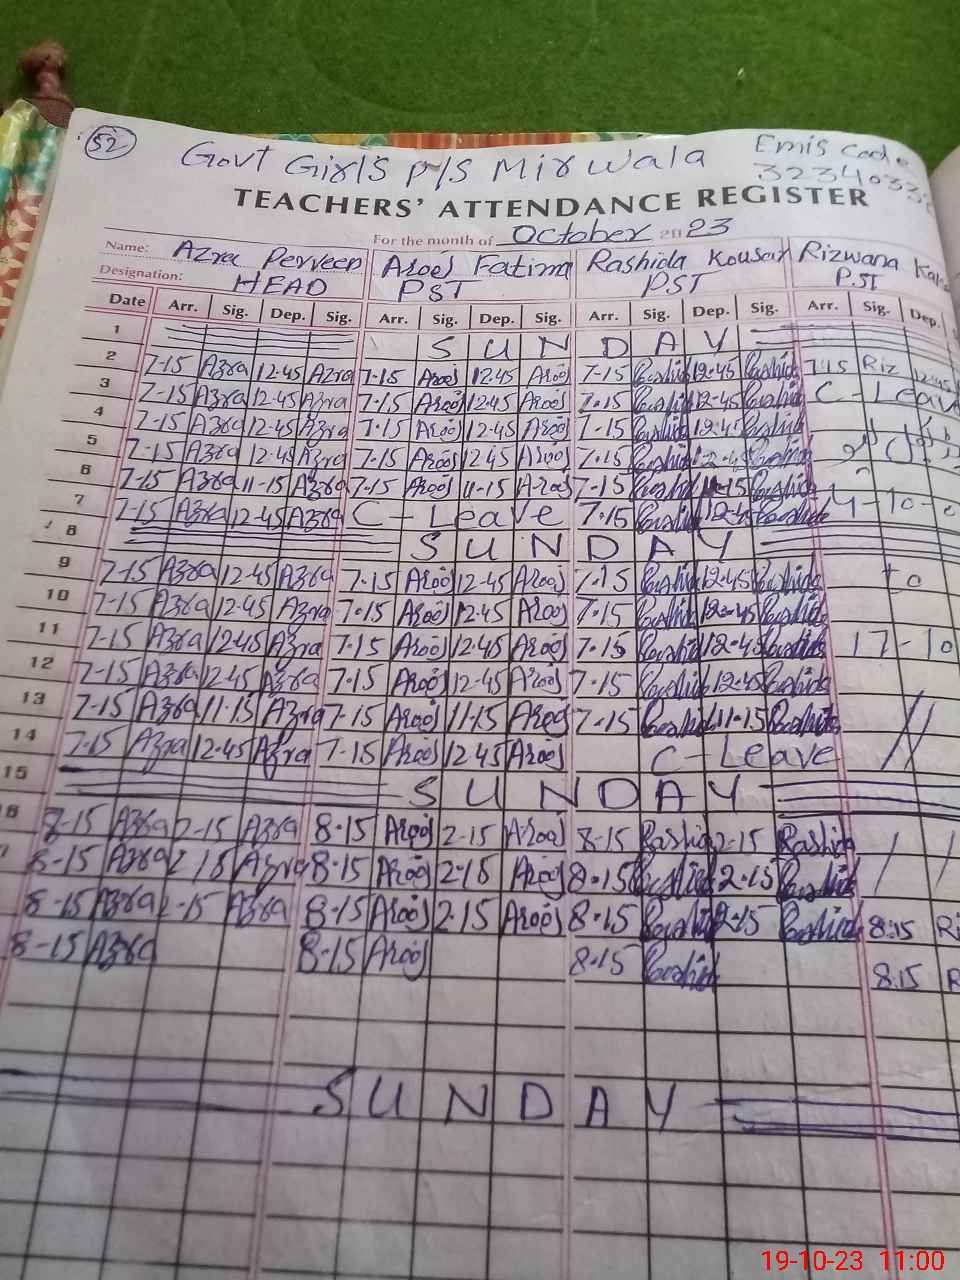 52
Govt Girls P/S Mirwala Emis Code
TEACHERS' ATTENDANCE REGISTER
For the month of October 2023
Name: Azra Perveen Arooj Fatima Rashida Kousar Rizwana
Designation: HEAD PST PST PST
Date Arr. Sig. Dep. Sig. Arr. Sig. Dep. Sig. Arr. Sig. Dep. Sig. Arr. Sig. Dep.
1 S U N D A Y
2 7-15 Azra 12-45 Azra 7-15 Arooj 12-45 Arooj 7-15 Rashida 12-45 Rashida 7-15 Riz 12-45
3 7-15 Azra 12-45 Azra 7-15 Arooj 12-45 Arooj 7-15 Rashida 12-45 Rashida C-Leave
4 7-15 Azra 12-45 Azra 7-15 Arooj 12-45 Arooj 7-15 Rashida 12-45 Rashida
5 7-15 Azra 12-45 Azra 7-15 Arooj 12-45 Arooj 7-15 Rashida 12-45 Rashida
6 7-15 Azra 11-15 Azra 7-15 Arooj 11-15 Arooj 7-15 Rashida 11-15 Rashida
7 7-15 Azra 12-45 Azra C-Leave 7-15 Rashida 12-45 Rashida
8 S U N D A Y
9 7-15 Azra 12-45 Azra 7-15 Arooj 12-45 Arooj 7-15 Rashida 12-45 Rashida to
10 7-15 Azra 12-45 Azra 7-15 Arooj 12-45 Arooj 7-15 Rashida 12-45 Rashida
11 7-15 Azra 12-45 Azra 7-15 Arooj 12-45 Arooj 7-15 Rashida 12-45 Rashida 17-10
12 7-15 Azra 12-45 Azra 7-15 Arooj 12-45 Arooj 7-15 Rashida 12-45 Rashida
13 7-15 Azra 11-15 Azra 7-15 Arooj 11-15 Arooj 7-15 Rashida 11-15 Rashida
14 7-15 Azra 12-45 Azra 7-15 Arooj 12-45 Arooj C-Leave
15 S U N D A Y
8-15 Azra 2-15 Azra 8-15 Arooj 2-15 Arooj 8-15 Rashida 2-15 Rashida
8-15 Azra 2-15 Azra 8-15 Arooj 2-15 Arooj 8-15 Rashida 2-15 Rashida
8-15 Azra 2-15 Azra 8-15 Arooj 2-15 Arooj 8-15 Rashida 2-15 Rashida 8:15
8-15 Azra 8-15 Arooj 8-15 Rashida 8:15
S U N D A Y
19-10-23 11:00